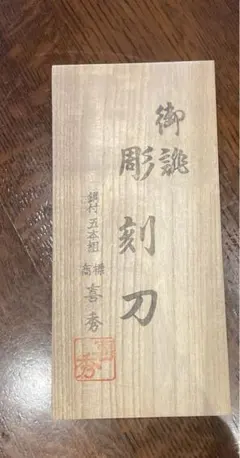 御誂
彫刻刀
鋼付五本組
高橋喜秀
喜秀